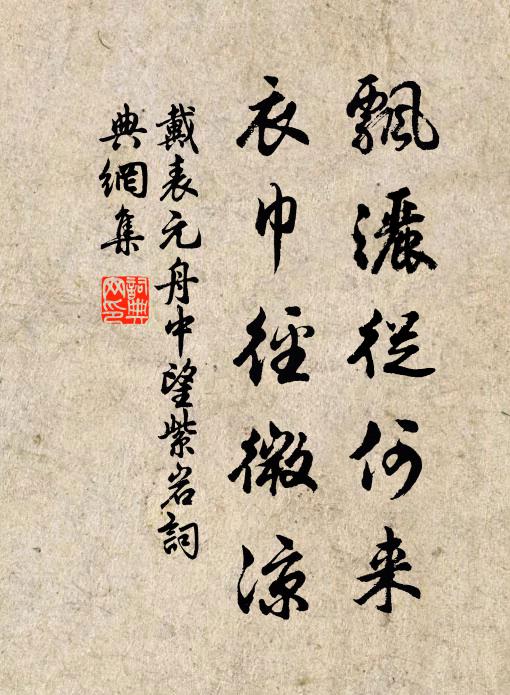 飄灑從何来
衣巾徑微涼
戴表元舟中望紫岩詞
典網集
詞典網印